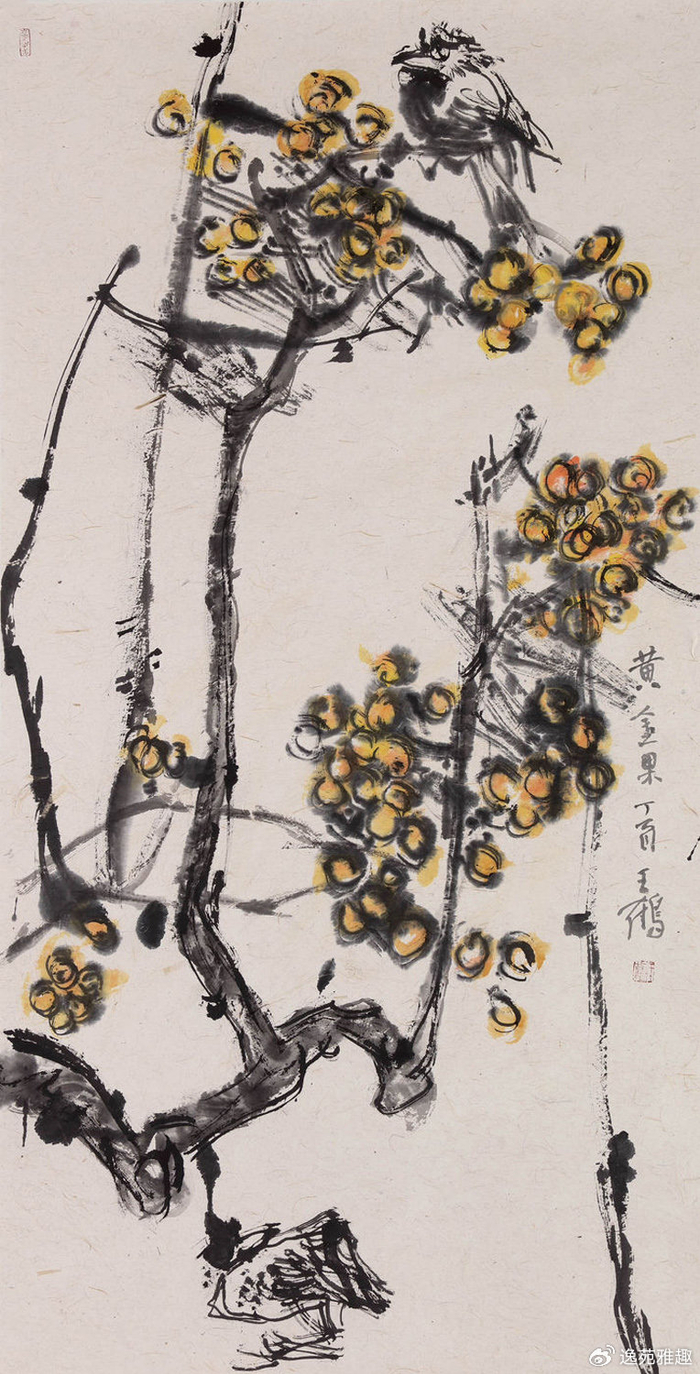 黄金果 丁酉 王鹤
逸苑雅趣